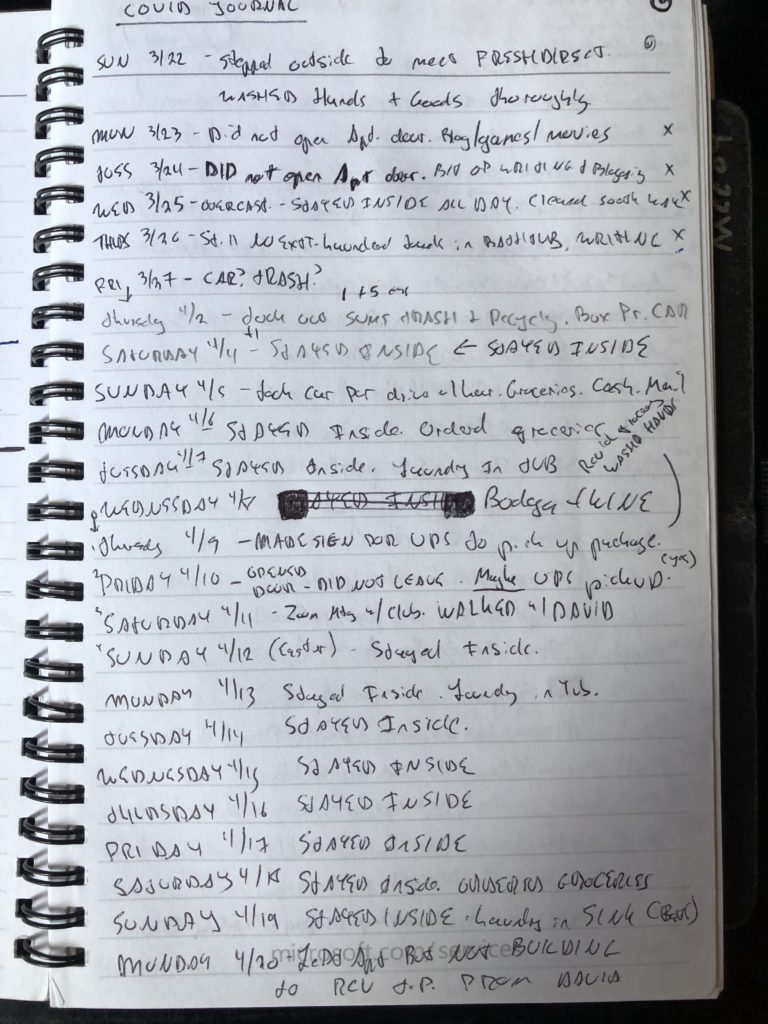 COVID JOURNAL
SUN 3/22 - Stepped outside to meet FRESHDIRECT.
WASHED Hands + Goods thoroughly
MON 3/23 - Did not open Apt. door. Blog/games/movies x
TUES 3/24 - DID not open Apt door. Bit OF WRITING & Blogging x
WED 3/25 - OVERCAST. - STAYED INSIDE ALL DAY. Cleaned x
THUR 3/26 - Still NO EXIT. in BATHTUB. WRITING x
FRI 3/27 - CAR? TRASH?
Thursday 4/2 - took out SOME TRASH & Recycly. CAR
SATURDAY 4/4 - STAYED INSIDE ← STAYED INSIDE
SUNDAY 4/5 - took car for drive. Groceries. Cash. Mail
MONDAY 4/6 STAYED Inside. Ordered groceries
TUESDAY 4/7 STAYED Inside. Laundry In TUB
WASHED HANDS
WEDNESDAY 4/8 STAYED INSIDE Bodega + WINE
Thursday 4/9 - MADE SIGN FOR UPS to pick up package.
FRIDAY 4/10 - OPENED DOOR - DID NOT LEAVE. Maybe UPS pickup. (yes)
SATURDAY 4/11 - Zoom Mtg w/ Club. WALKED w/ DAVID
SUNDAY 4/12 (Easter) - Stayed Inside.
MONDAY 4/13 Stayed Inside. Laundry in Tub.
TUESDAY 4/14 STAYED Inside.
WEDNESDAY 4/15 STAYED INSIDE
THURSDAY 4/16 STAYED INSIDE
FRIDAY 4/17 STAYED INSIDE
SATURDAY 4/18 STAYED Inside. GROCERIES
SUNDAY 4/19 STAYED INSIDE. Laundry in SINK
MONDAY 4/20 - Left Apt But NOT BUILDING
to RCV T.P. FROM DAVID